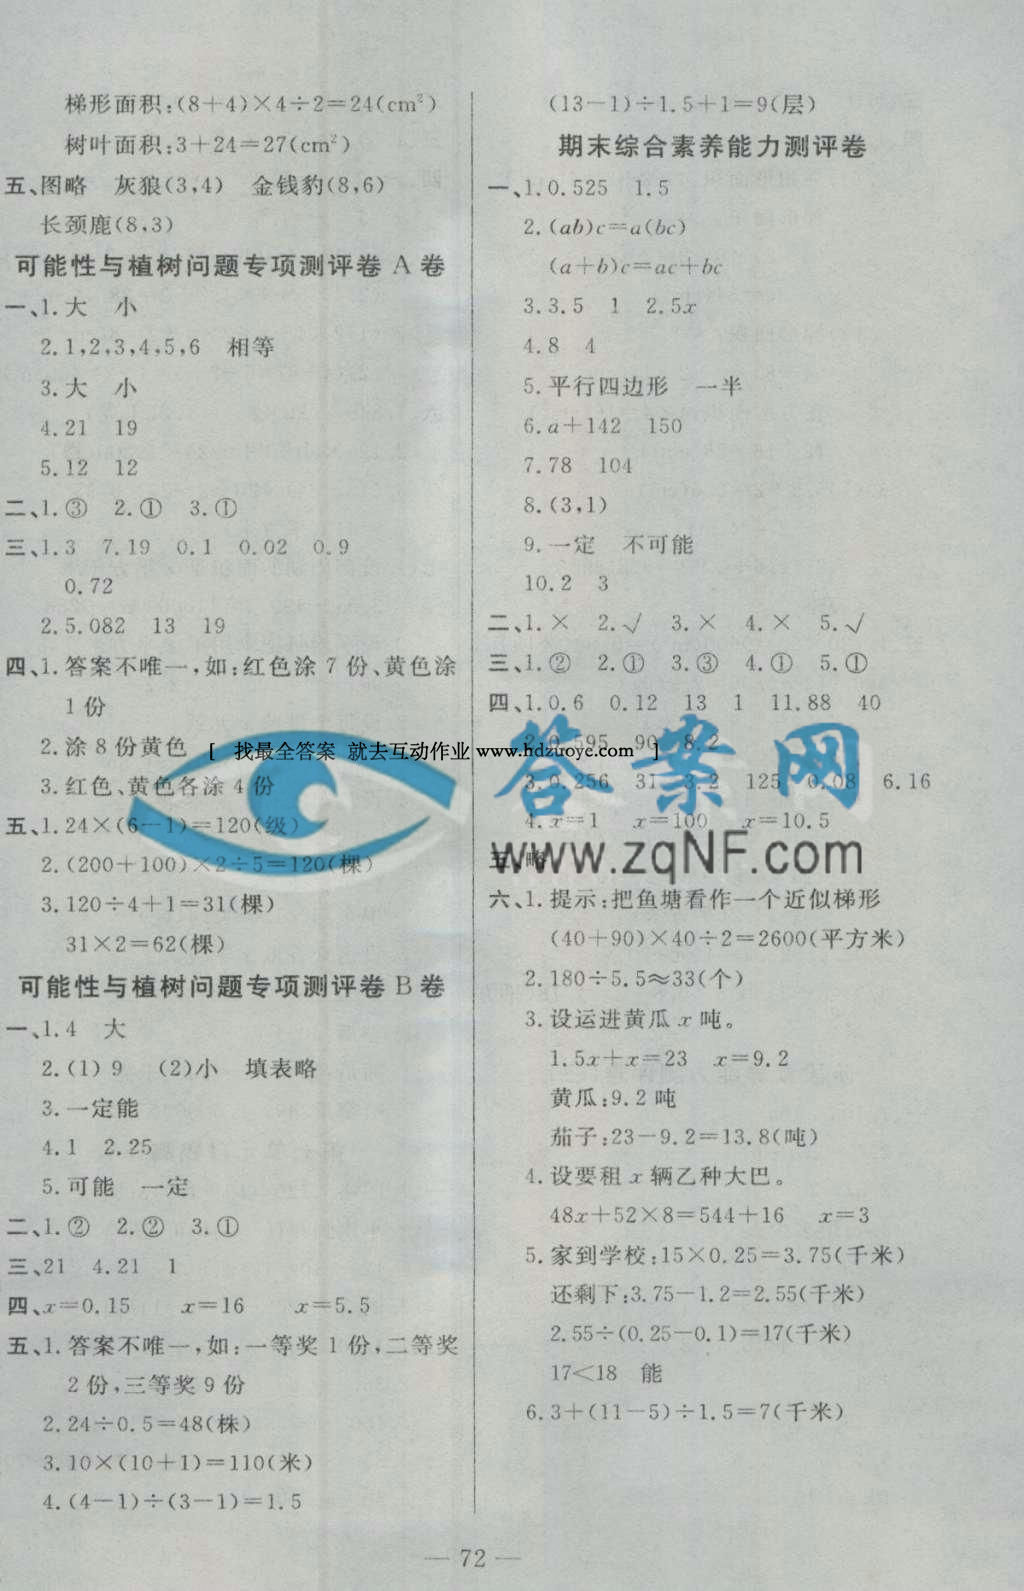 梯形面积:(8+4)×4÷2=24(cm²)
树叶面积:3+24=27(cm²)
五、图略 灰狼(3,4) 金钱豹(8,6)
长颈鹿(8,3)
可能性与植树问题专项测评卷 A 卷
一、1.大 小
2.1,2,3,4,5,6 相等
3.大 小
4.21 19
5.12 12
二、1.③ 2.① 3.①
三、1.3 7.19 0.1 0.02 0.9
0.72
2.5.082 13 19
四、1.答案不唯一,如:红色涂 7 份、黄色涂
1份
2.涂8份黄色
3.红色、黄色各涂4份
五、1.24×(6-1)=120(级)
2.(200+100)×2÷5=120(棵)
3.120÷4+1=31(棵)
31×2=62(棵)
可能性与植树问题专项测评卷 B 卷
一、1.4 大
2.(1) 9 (2)小 填表略
3.一定能
4.1 2.25
5.可能 一定
二、1.② 2.② 3.①
三、21 4.21 1
四、x=0.15 x=16 x=5.5
五、1.答案不唯一,如:一等奖 1 份,二等奖
2份,三等奖9份
2.24÷0.5=48(株)
3.10×(10+1)=110(米)
4.(4-1)÷(3-1)=1.5
(13-1)÷1.5+1=9(层)
期末综合素养能力测评卷
一、1.0.525 1.5
2.(ab)c=a(bc)
(a+b)c=ac+bc
3.3.5 1 2.5x
4.8 4
5.平行四边形 一半
6.a+142 150
7.78 104
8.(3,1)
9.一定 不可能
10.2 3
二、1.× 2.√ 3.× 4.× 5.√
三、1.② 2.① 3.③ 4.① 5.①
四、1.0.6 0.12 13 1 11.88 40
2.0.595 90 8.2
3.0.256 31 3.2 125 0.08 6.16
4.x=1 x=100 x=10.5
五、略
六、1.提示:把鱼塘看作一个近似梯形
(40+90)×40÷2=2600(平方米)
2.180÷5.5≈33(个)
3.设运进黄瓜 x 吨。
1.5x+x=23 x=9.2
黄瓜:9.2吨
茄子:23-9.2=13.8(吨)
4.设要租 x 辆乙种大巴。
48x+52×8=544+16 x=3
5.家到学校:15×0.25=3.75(千米)
还剩下:3.75-1.2=2.55(千米)
2.55÷(0.25-0.1)=17(千米)
17<18 能
6.3+(11-5)÷1.5=7(千米)
[ 找最全答案 就去互动作业 www.hdzuoye.com ]
答案网
www.zqNF.com
— 72 —